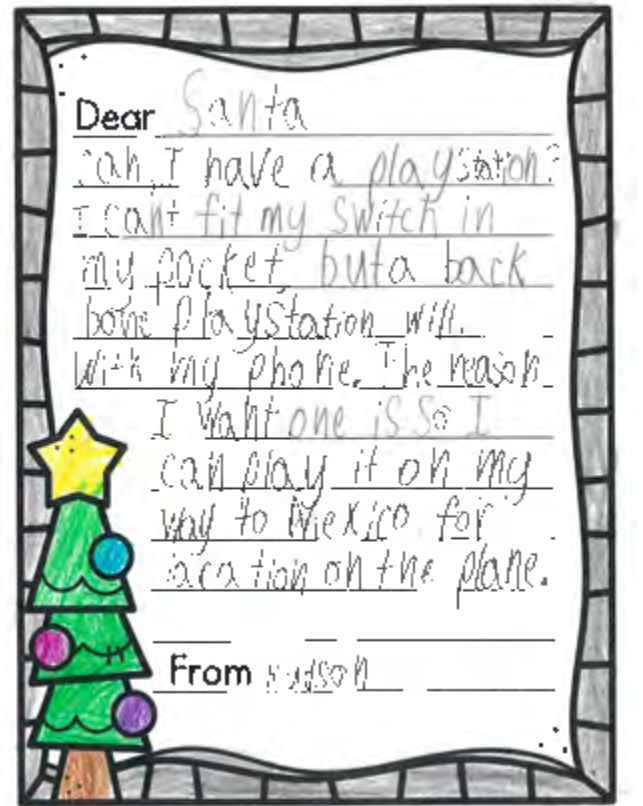 Dear Santa
can I have a playstation?
I cant fit my switch in
my pocket but a back
bone playstation will.
With my phone. The reason
I want one is so I
can play it on my
way to Mexico for
vacation on the plane.
From